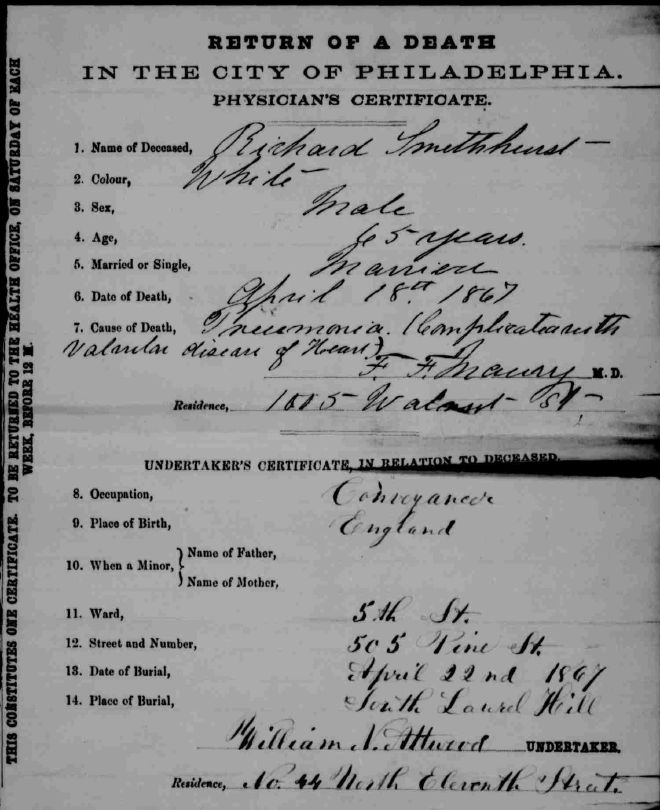 RETURN OF A DEATH
IN THE CITY OF PHILADELPHIA.
PHYSICIAN'S CERTIFICATE.
1. Name of Deceased, Richard Smethhurst
2. Colour, White
3. Sex, Male
4. Age, 65 years.
5. Married or Single, Married
6. Date of Death, April 18th 1867
7. Cause of Death, Pneumonia. (Complicated with
Valvular disease of Heart)
F. F. Maury M.D.
Residence, Walnut St
UNDERTAKER'S CERTIFICATE, IN RELATION TO DECEASED.
8. Occupation, Conveyancer
9. Place of Birth, England
10. When a Minor, { Name of Father,
Name of Mother,
11. Ward, 5th St.
12. Street and Number, 505 Pine St.
13. Date of Burial, April 22nd 1867
14. Place of Burial, South Laurel Hill
William N. Attwood UNDERTAKER.
Residence, No. 44 North Eleventh Street.
THIS CONSTITUTES ONE CERTIFICATE. TO BE RETURNED TO THE HEALTH OFFICE, ON SATURDAY OF EACH
WEEK, BEFORE 12 M.